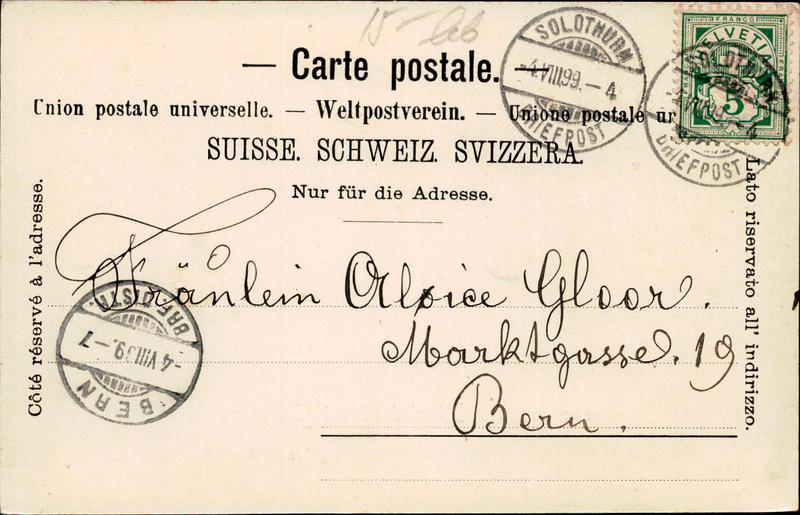 — Carte postale. —
Union postale universelle. — Weltpostverein. — Unione postale un
SUISSE. SCHWEIZ. SVIZZERA.
Nur für die Adresse.
SOLOTHURN
-4.VIII.99.-4
BRIEFPOST
FRANCO
HELVETIA
5
BRIEFPOST
Côté réservé à l'adresse.
Lato riservato all' indirizzo.
Fräulein Aloice Gloor.
Marktgasse. 19
Bern.
BRF. DIST.
-4.VIII.99.-7
BERN